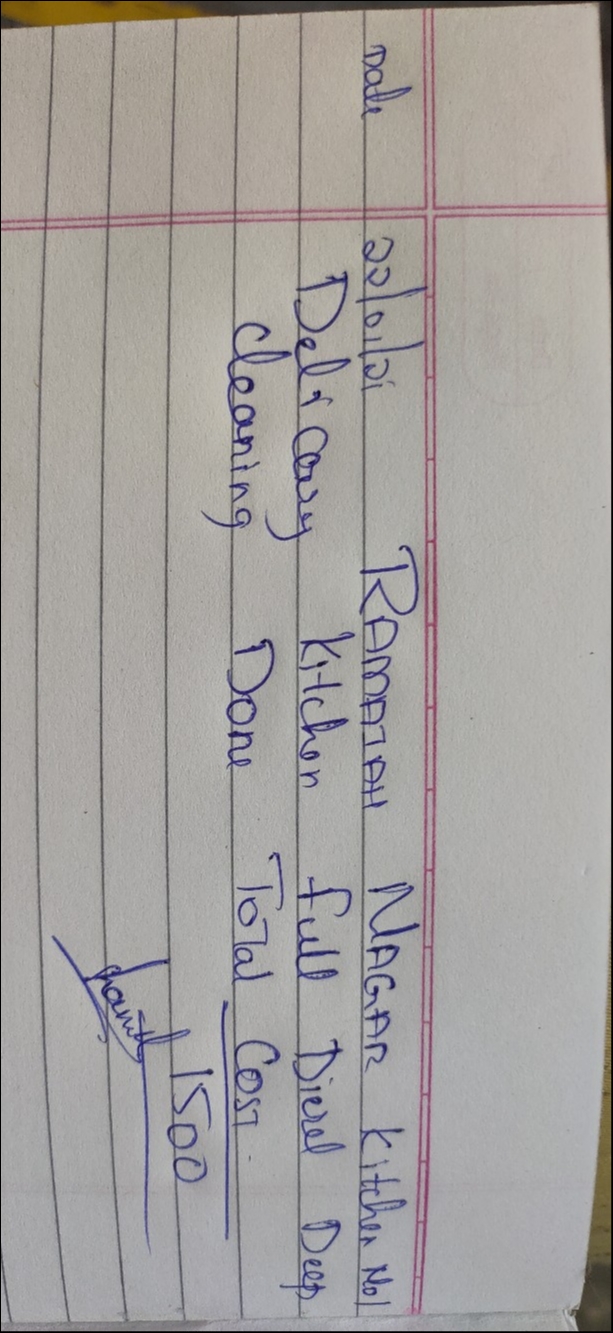 Date 22/01/21 RAMAIAH NAGAR Kitchen No1
Delr Cavy Kitchen full Diesel Deep
cleaning Done Total Cost
1500